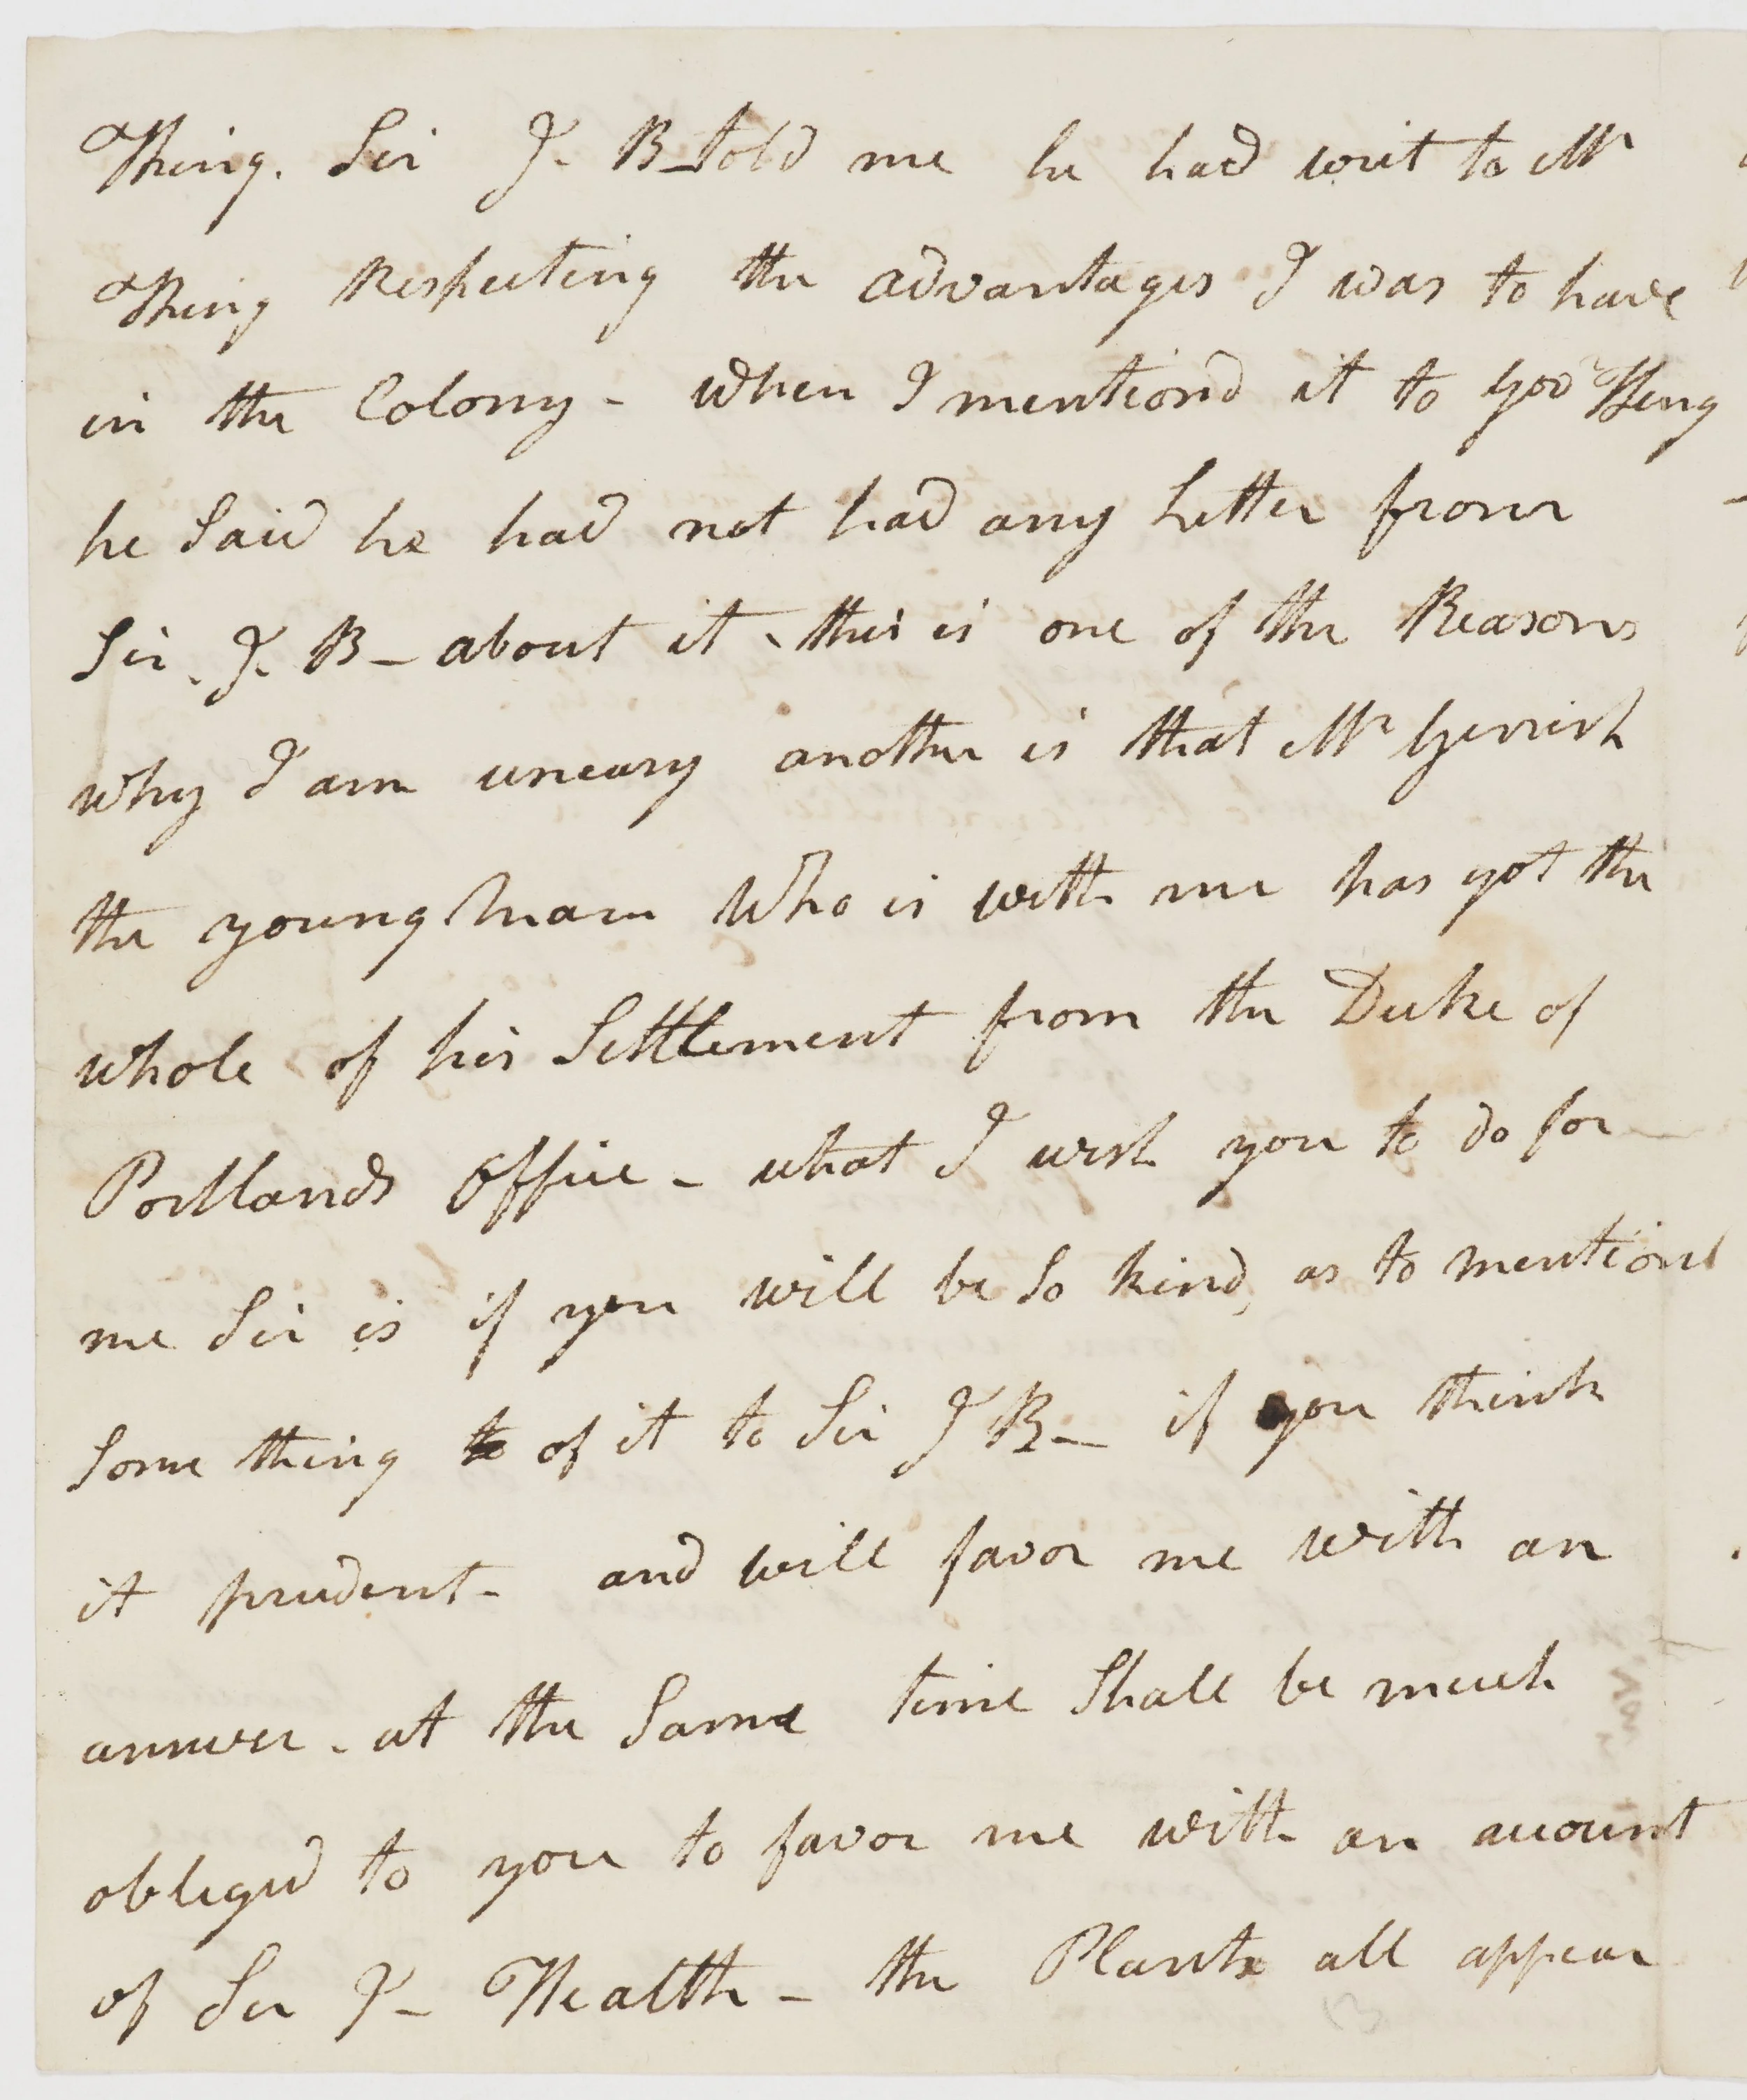 King. Sir J. B– told me he had writ to Mr
King Respecting the advantages I was to have
in the Colony – when I mentiond it to Gov King
he Said he had not had any Letter from
Sir. J. B – about it – this is one of the Reasons
why I am uneasy another is that Mr Gerrish
the young Man Who is with me has got the
whole of his Settlement from the Duke of
Portlands Office – what I wish you to do for
me Sir is if you will be So kind, as to mention
Some thing to of it to Sir J B – if you think
it prudent – and will favor me with an
answer – at the Same time Shall be much
obliged to you to favor me with an account
of Sir J – Health – the Plants all appear